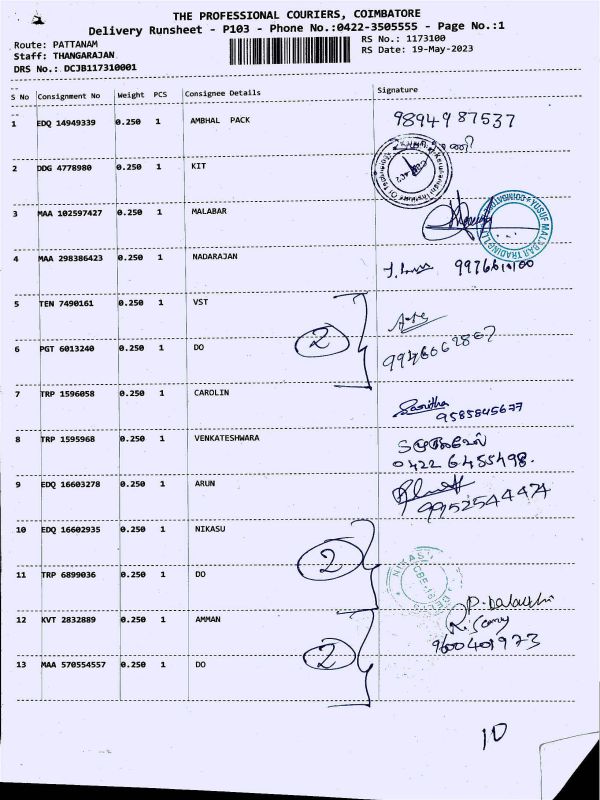 THE PROFESSIONAL COURIERS, COIMBATORE
Delivery Runsheet - P103 - Phone No.:0422-3505555 - Page No.:1
Route: PATTANAM
RS No.: 1173100
Staff: THANGARAJAN
RS Date: 19-May-2023
DRS No.: DCJB117310001
S No Consignment No Weight PCS Consignee Details Signature
1 EDQ 14949339 0.250 1 AMBHAL PACK 9894987537
2 DDG 4778980 0.250 1 KIT
3 MAA 102597427 0.250 1 MALABAR
4 MAA 298386423 0.250 1 NADARAJAN
5 TEN 7490161 0.250 1 VST
2
6 PGT 6013240 0.250 1 DO
7 TRP 1596058 0.250 1 CAROLIN
9585845677
8 TRP 1595968 0.250 1 VENKATESHWARA
0422 6455498.
9 EDQ 16603278 0.250 1 ARUN
9952544474
10 EDQ 16602935 0.250 1 NIKASU
2
11 TRP 6899036 0.250 1 DO
12 KVT 2832889 0.250 1 AMMAN
2
9600401973
13 MAA 570554557 0.250 1 DO
10